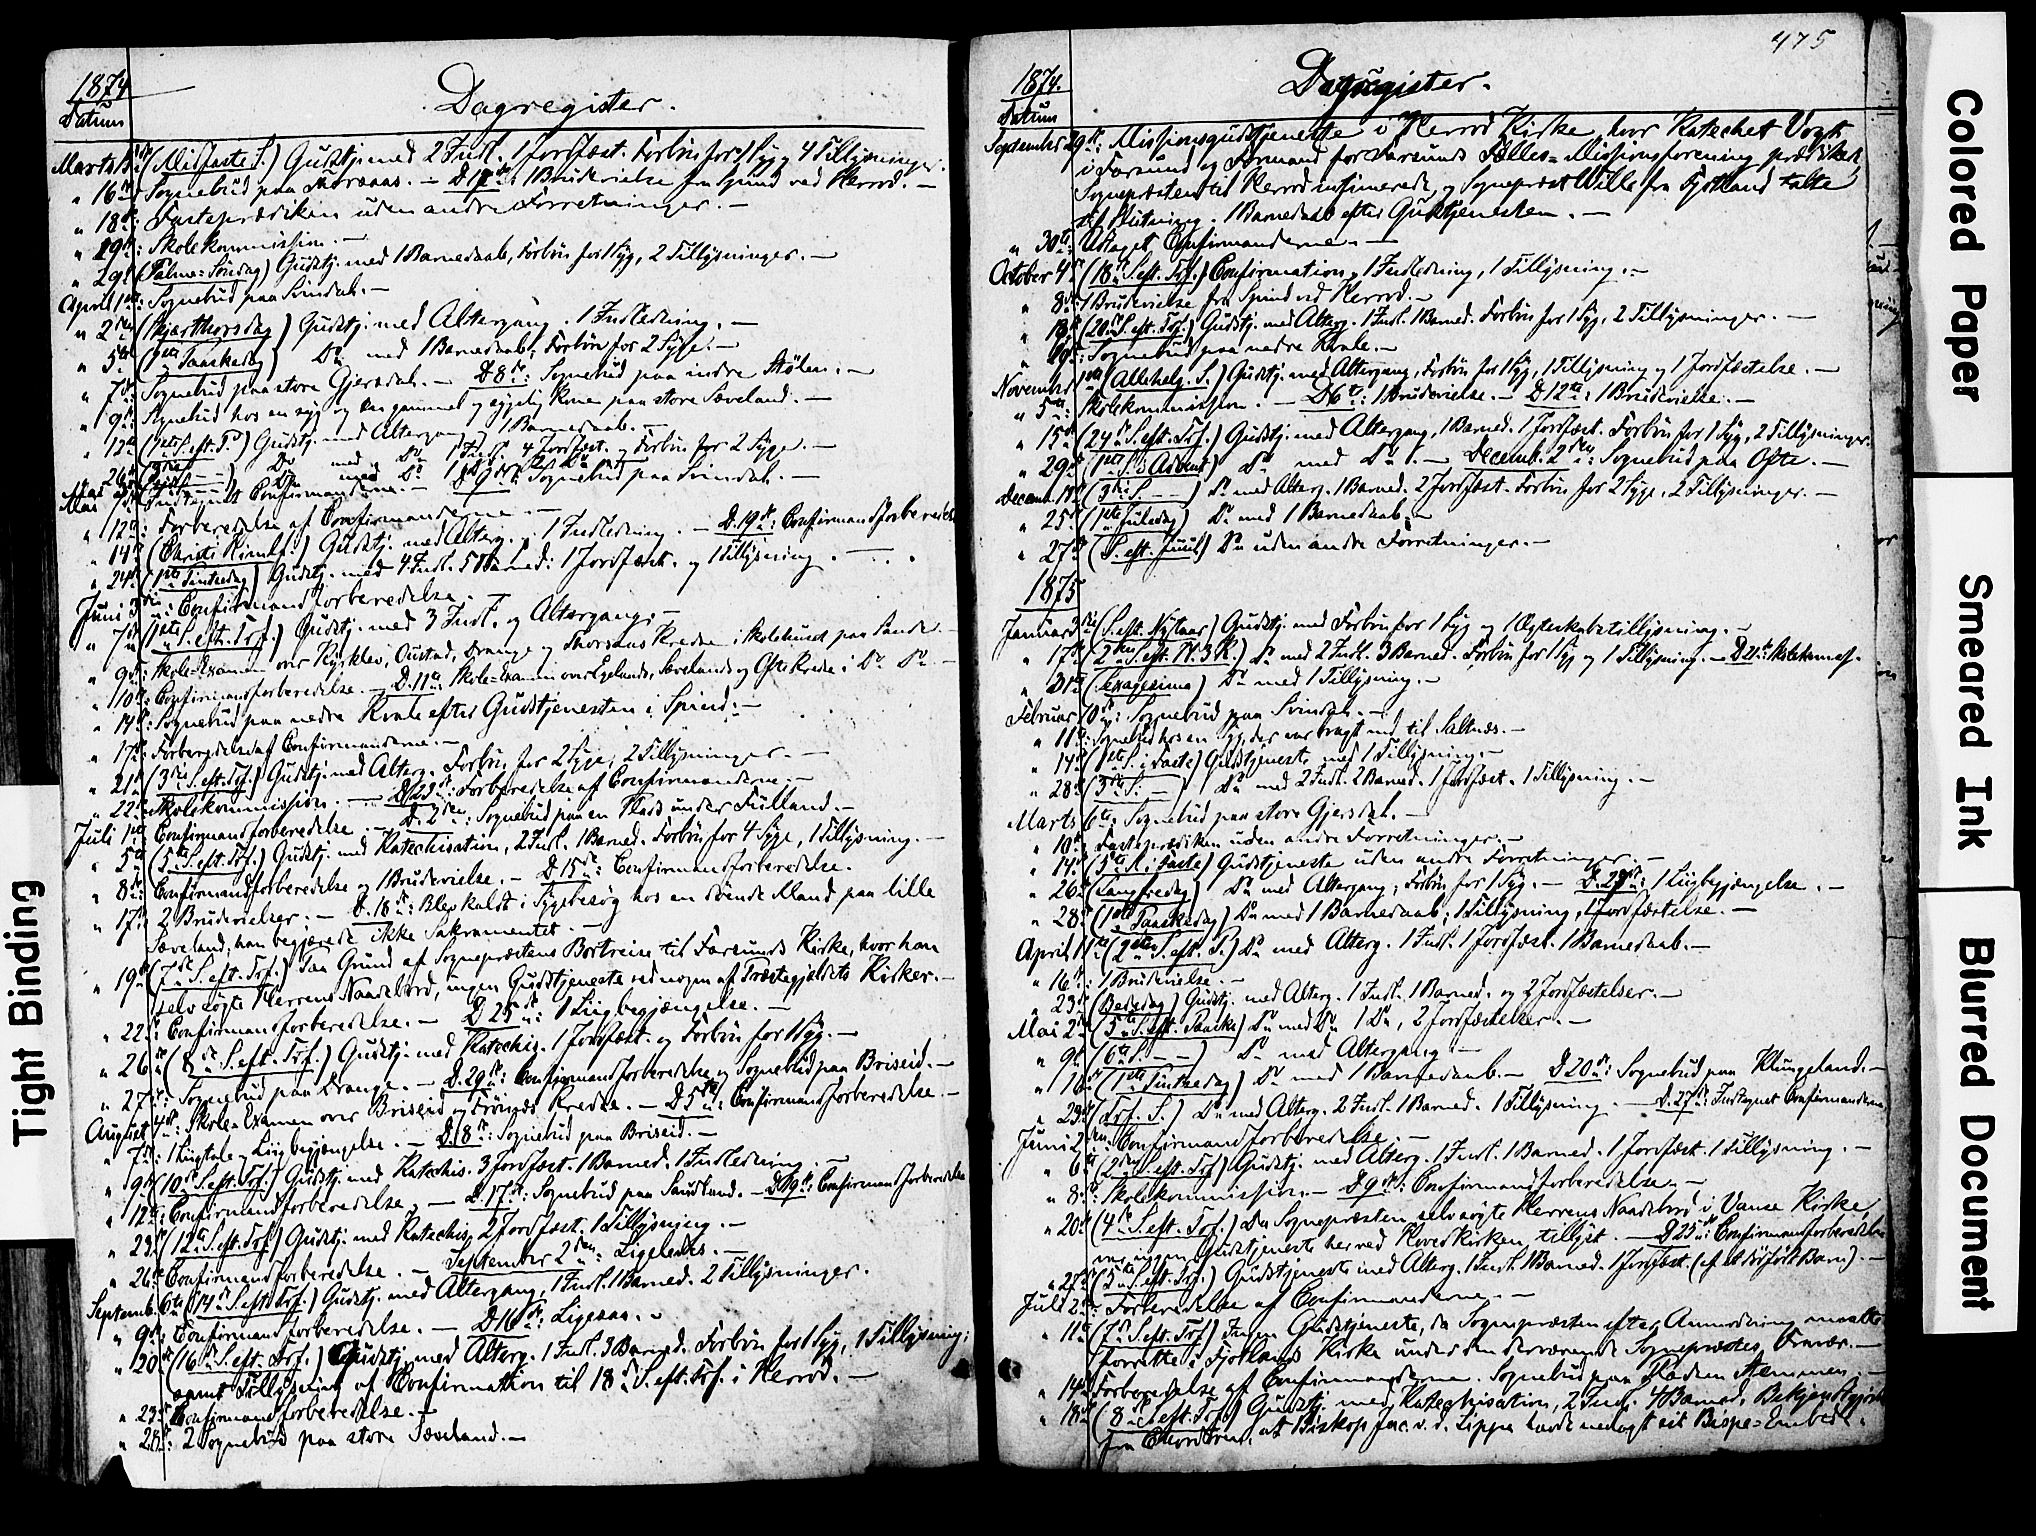 1874
Datum
Dagregister.
Marts 15de (Midfaste S.) Gudstj. med 2 Indl. 1 Jordfæst. Forbøn for 1 Syg og 4 Tillysninger.
" 16de: Sognebud paa . – D. 17de: 1 Brudevielse fra Spind ved Herred. –
" 18de: Fasteprædiken uden andre Forretninger. –
" 19de: Skolekommission. –
" 29de (Palme-Søndag) Gudstj. med 1 Barnedaab, Forbøn for 1 Syg, 2 Tillysninger. –
April 1ste: Sognebud paa Svindal. –
" 2den (Skjærthorsdag) Gudstj. med Altergang. 1 Indledning. –
" 5te (1ste Paaskedag) Do med 1 Barnedaab, Forbøn for 2 Syge. –
" 7de: Sognebud paa store Gjersdal. – D. 8de: Sognebud paa indre Stølen. –
" 9de: Sognebud hos en syg og en gammel og sygelig Kone paa store Sæveland. –
" 12te (1ste S. eft. P.) Gudstj. med Altergang, 1 Barnedaab. –
Do med Do 1 Indl. 4 Jordfæst. og Forbøn for 2 Syge. –
" 26de (3die – –) Do med Do
Mai D. 9de: Sognebud paa Svindal. –
Indtegnet Confirmanderne. –
" 12te: Forberedelse af Confirmanderne. –
" 14de (Christi Himmelf.) Gudstj. med Alterg. 1 Indledning. – D. 19de: Confirmandforberedelse
" 24de (1ste Pintsedag) Gudstj. med 4 Indl. 5 Barned. 1 Jordfæst. og 1 Tillysning. –
Juni 3die: Confirmandforberedelse. –
" 7de (1ste S. eft. Trf.) Gudstj. med 3 Indl. og Altergang. –
" 9de: Skole-Examen over Rysklev, Oustad, Drange og Thorsans Kredse i Skolehuset paa Sande –
" 10de: Confirmandforberedelse. – D. 11te: Skole-Examen over Egelands, Sævelands og Ofte Kredse i Do Do –
" 14de: Sognebud paa nedre Kvale efter Gudstjenesten i Spind. –
" 17de: Forberedelse af Confirmanderne. –
" 21de (3die S. eft. Trf.) Gudstj. med Alterg. Forbøn for 2 Syge, 2 Tillysninger. –
" 22de: Skolekommission. – D. 25de: Forberedelse af Confirmanderne. –
Juli 1ste: Confirmandforberedelse. – D. 2den: Sognebud paa en Plads under Fuland. –
" 5te (5te S. eft. Trf.) Gudstj. med Katechisation, 2 Indl. 1 Barned. Forbøn for 4 Syge, 1 Tillysning. –
" 8de: Confirmandforberedelse og 1 Brudevielse. – D. 15de: Confirmandforberedelse.
" 17de 2 Brudevielser. – D. 18de: Blev kaldt i Sygebesøg hos en døende Mand paa lille
Sæveland, han begjærede ikke Sakramentet. –
" 19de (7de S. eft. Trf.) Paa Grund af Sognepræstens Bortreise til Farsunds Kirke, hvor han
selv søgte Herrens Naadebord, ingen Gudstjeneste ved nogen af Præstegjeldets Kirker. –
" 22de: Confirmandforberedelse. – D. 25de: 1 Liigbegjængelse. –
" 26de (8de S. eft. Trf.) Gudstj. med Katechis. 1 Jordfæst. og Forbøn for 1 Syg. –
" 27de: Sognebud paa Drange. – D. 29de: Confirmandforberedelse og Sognebud paa Briseid. –
August 4de: Skole-Examen over Briseid og Frøines Kredse. – D. 5te: Confirmandforberedelse. –
" 7de: 1 Liigtale og Liigbegjængelse. – D. 8de: Sognebud paa Briseid. –
" 9de (10de S. eft. Trf.) Gudstj. med Katechis. 3 Jordfæst. 1 Barned. 1 Indledning. –
" 12te: Confirmandforberedelse. – D. 17de: Sognebud paa Sandland. – D. 19de: Confirmandforberedelse
" 23de (12te S. eft. Trf.) Gudstj. med Katechis, 2 Jordfæst. 1 Tillysning. –
" 26de: Confirmandforberedelse. – September 2den: Ligeledes. –
Septemb. 6te (14de S. eft. Trf.) Gudstj. med Altergang, 1 Indl. 1 Barned. 2 Tillysninger.
" 9de: Confirmandforberedelse. – D. 16de: Ligesaa. –
" 20de (16de S. eft. Trf.) Gudstj. med Alterg. 1 Indl. 3 Barned. Forbøn for 1 Syg, 1 Tillysning;
samt Tillysning af Confirmation til 18de S. eft. Trf. i Herred. –
" 23de Confirmandforberedelse. –
" 2 Sognebud paa store Sæveland. –
475
1874.
Datum
Dagregister.
September 29de: Missionsgudstjeneste i Herred Kirke, hvor Katechet Vogt
i Farsund og Formand for Farsunds Fælles-Missionsforening prædikede,
Sognepræsten til Herred intimerede, og Sognepræst Wille fra Fjotland talte
til Slutning. 1 Barnedaab efter Gudstjenesten. –
" 30te: Udtaget Confirmanderne. –
October 4de (18de S. eft. Trf.) Confirmation, 1 Indledning, 1 Tillysning. –
" 8de: 1 Brudevielse fra Spind ved Herred. –
" 18de (20de S. eft. Trf.) Gudstj. med Alterg. 1 Indl. 1 Barned. Forbøn for 1 Syg, 2 Tillysninger. –
" 19de: Sognebud paa nedre Kvale. –
November 1ste (Allehelg. S.) Gudstj. med Altergang, Forbøn for 1 Syg, 1 Tillysning og 1 Jordfæstelse. –
" 5te: Skolekommission. – D. 6te: 1 Brudevielse. – D. 12te: 1 Brudevielse. –
" 15de (24de S. eft. Trf.) Gudstj. med Altergang, 1 Barned. 1 Jordfæst. Forbøn for 1 Syg, 2 Tillysninger.
" 29de (1ste S. i Advent) Do med Do. – Decemb. 2den: Sognebud paa Ofte. –
Decemb. 13de (3die S. –) Do med Alterg. 1 Barned. 2 Jordfæst. Forbøn for 2 Syge, 2 Tillysninger. –
" 25de (1ste Juledag) Do med 1 Barnedaab. –
" 27de (S. eft. Juul) Do uden andre Forretninger. –
1875
Januar 3die (S. eft. Nytaar) Gudstj. med Forbøn for 1 Syg og 1 Ægteskabstillysning. –
" 17de (2den S. eft. H. 3 K.) Do med 2 Indl. 3 Barned. Forbøn for 1 Syg og 1 Tillysning. – D. 21de: Skolekomsf.
" 31te (Sexagesima) Do med 1 Tillysning. –
Februar 10de: Sognebud paa Svindal. –
" 11te: Sognebud hos en Syg, der var bragt ned til Saltnes. –
" 14de (1ste S. i Faste) Gudstjeneste med 1 Tillysning. –
" 28de (3die S. –) Do med 2 Indl. 2 Barned. 1 Jordfæst. 1 Tillysning. –
Marts 6te: Sognebud paa store Gjersdal. –
" 10de: Fasteprædiken uden andre Forretninger. –
" 14de (5te S. i Faste) Gudstjeneste uden andre Forretninger. –
" 26de (Langfredag) Do med Altergang, Forbøn for 1 Syg. – D. 29de: 1 Liigbegjængelse. –
" 28de (1ste Paaskedag) Do med 1 Barnedaab, 1 Tillysning, 1 Jordfæstelse. –
April 11te (2den S. eft. P.) Do med Alterg. 1 Indl. 1 Jordfæst. 1 Barnedaab. –
" 16de: 1 Brudevielse. –
" 23de (Bededag) Gudstj. med Alterg. 1 Indl. 1 Barned. og 2 Jordfæstelser. –
Mai 2den (5te S. eft. Paaske) Do med Do 1 Do, 2 Jordfæstelser. –
" 9de (6te S. – –) Do med Altergang –
" 16de (1ste Pintsedag) Do med 1 Barnedaab. – D. 20de: Sognebud paa Klungeland. –
" 23de (Trf. S.) Do med Alterg. 2 Indl. 1 Barned. 1 Tillysning. – D. 27de: Indtegnet Confirmanderne
Juni 2den: Confirmandforberedelse. –
" 6te (2den S. eft. Trf.) Gudstj. med Alterg. 1 Indl. 1 Barned. 1 Jordfæst. 1 Tillysning. –
" 8de: Skolekommission. – D. 9de: Confirmandforberedelse. –
" 20de (4de S. eft. Trf.) Da Sognepræsten selv søgte Herrens Naadebord i Vanse Kirke,
var ingen Gudstjeneste her ved Hovedkirken tillyst. – D. 25de: Confirmandforberedelse
" 27de (5te S. eft. Trf.) Gudstjeneste med Alterg. 1 Indl. 1 Barned. 1 Jordfæst. (af et dødfødt Barn). –
Juli 2den: Forberedelse af Confirmanderne. –
" 11te (7de S. eft. Trf.) Ingen Gudstjeneste, da Sognepræsten efter Anmodning maatte
forrette i Fjotlands Kirke under den derværende Sognepræstes Fravær. –
" 14de Forberedelse af Confirmanderne. Sognebud paa Pladsen Hemmen. –
" 18de (8de S. eft. Trf.) Gudstj. med Katechisation, 2 Indl. 4 Barned. Bekjendtgjort
fra Chordøren, at Biskop Jac. v. d. Lippe havde nedlagt sit Bispe-Embed
Tight Binding
Colored Paper
Smeared Ink
Blurred Document